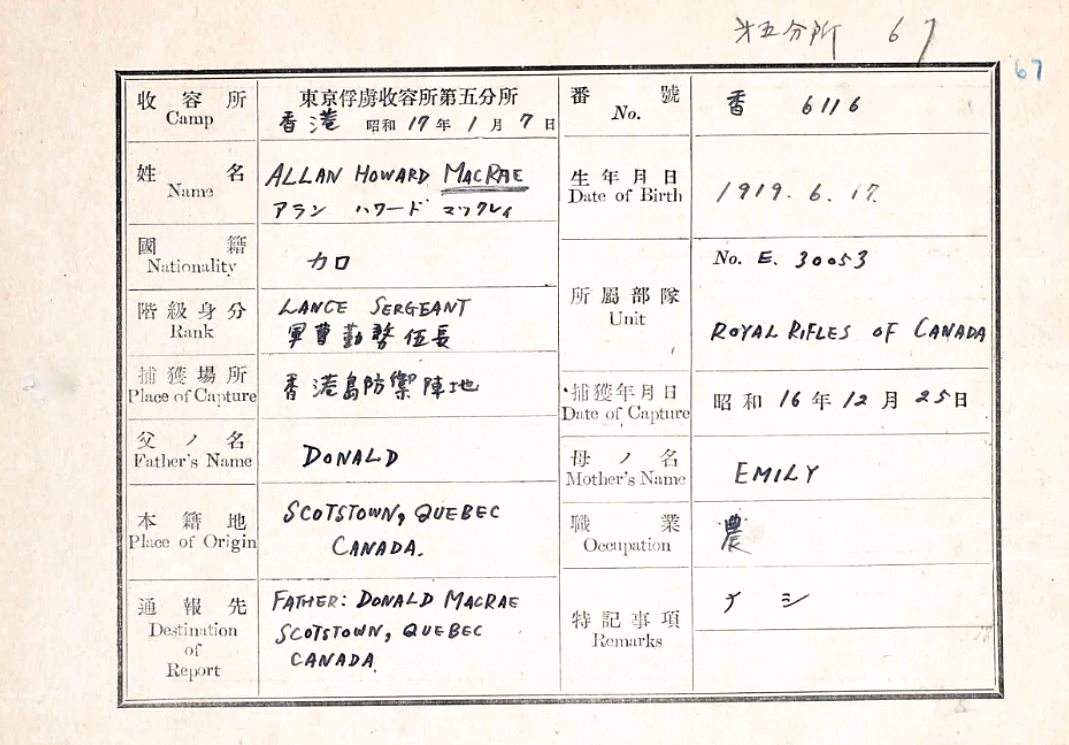 才五分所 67
67
收容所 東京俘虜收容所第五分所
Camp 香港 昭和 17 年 1 月 7 日
番號 香 6116
No.
姓名 ALLAN HOWARD MACRAE
Name アラン ハワード マックレイ
生年月日 1919. 6. 17.
Date of Birth
國籍 加
Nationality
階級身分 LANCE SERGEANT
Rank 軍曹勤務伍長
所屬部隊 No. E. 30053
Unit ROYAL RIFLES OF CANADA
捕獲場所 香港島防禦陣地
Place of Capture
捕獲年月日 昭和 16 年 12 月 25 日
Date of Capture
父ノ名 DONALD
Father's Name
母ノ名 EMILY
Mother's Name
本籍地 SCOTSTOWN, QUEBEC
Place of Origin CANADA.
職業 農
Occupation
通報先 FATHER: DONALD MACRAE
Destination SCOTSTOWN, QUEBEC
of CANADA.
Report
特記事項 ナシ
Remarks